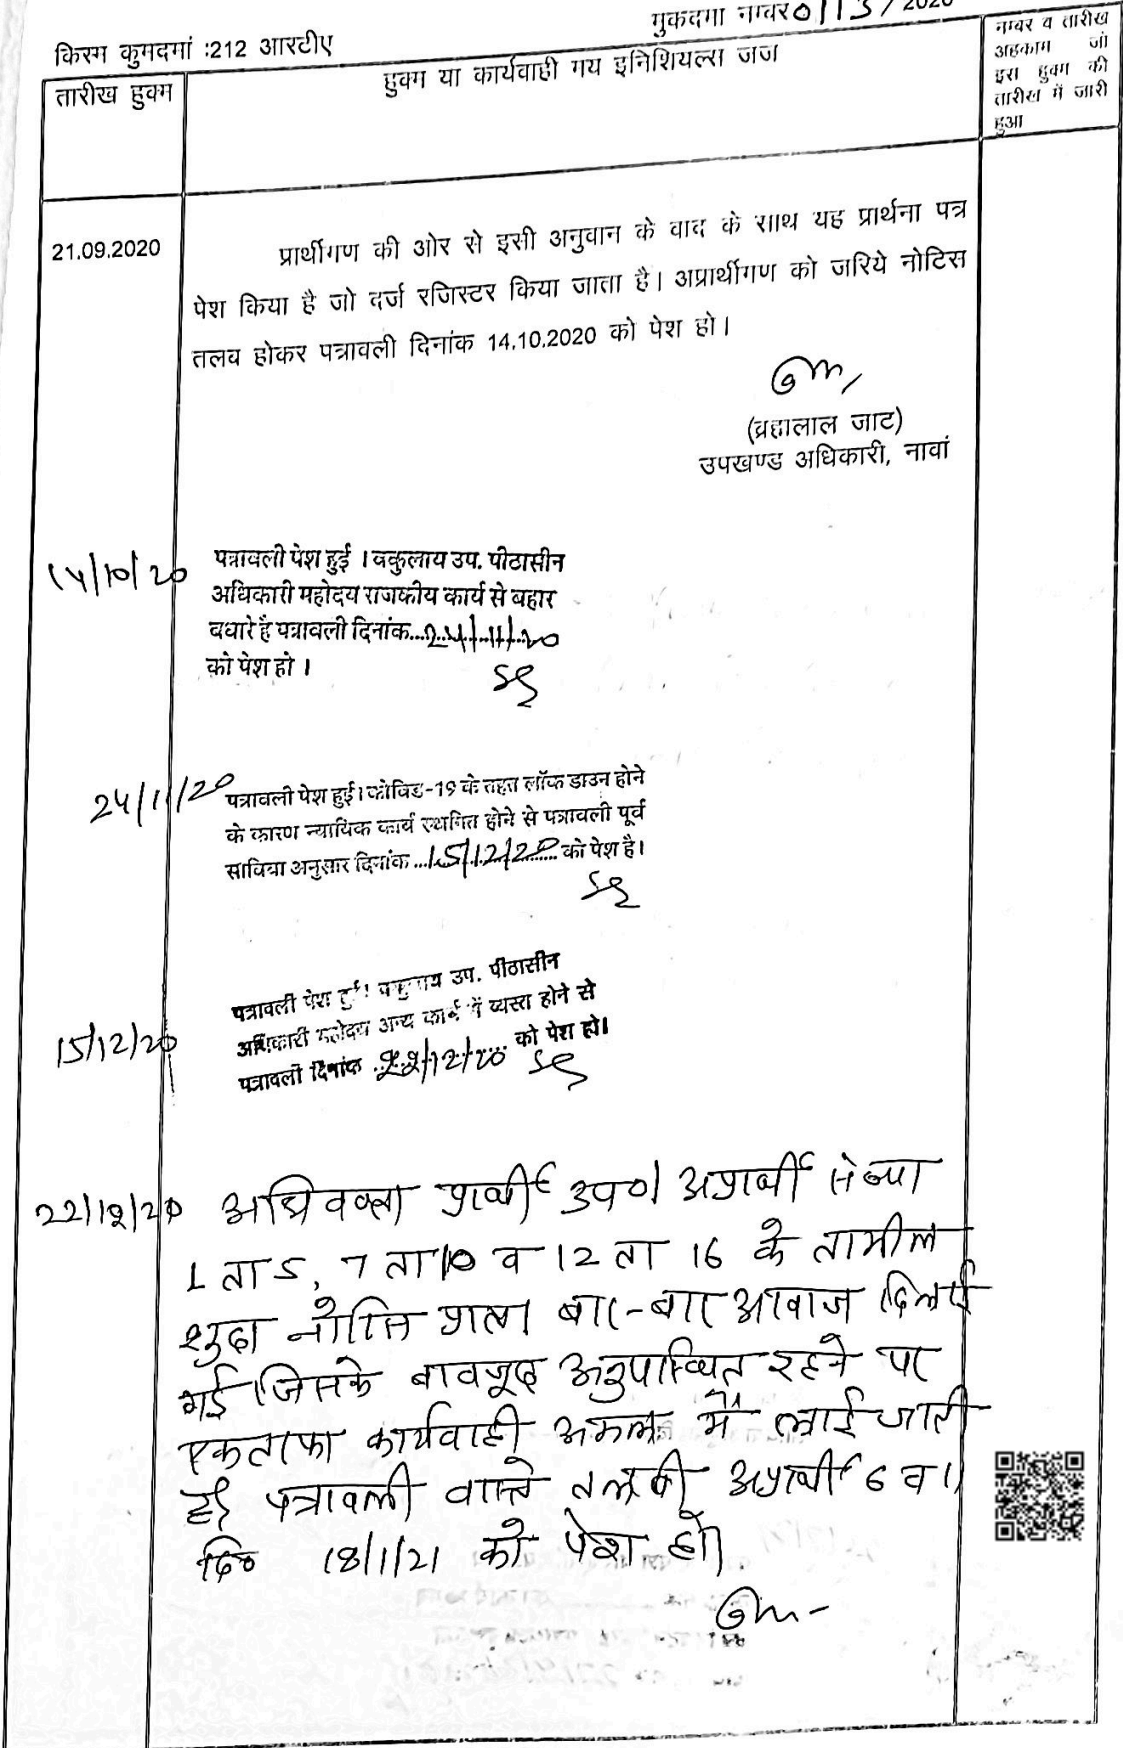 मुकदमा नम्बर 0113/2020
किस्म कुमदमां :212 आरटीए
तारीख हुक्म
हुक्म या कार्यवाही मय इनिशियल्स जज
नम्बर व तारीख
अहकाम जो
इस हुक्म की
तारीख में जारी
हुआ
21.09.2020
प्रार्थीगण की ओर से इसी अनुवान के वाद के साथ यह प्रार्थना पत्र
पेश किया है जो दर्ज रजिस्टर किया जाता है। अप्रार्थीगण को जरिये नोटिस
तलब होकर पत्रावली दिनांक 14.10.2020 को पेश हो।
(ब्रहालाल जाट)
उपखण्ड अधिकारी, नावां
14/10/20
पत्रावली पेश हुई । वकुलाय उप. पीठासीन
अधिकारी महोदय राजकीय कार्य से बहार
बधारे है पत्रावली दिनांक...24/11/20
को पेश हो ।
24/11/20
पत्रावली पेश हुई। कोविड-19 के तहत लॉक डाउन होने
के कारण न्यायिक कार्य स्थगित होने से पत्रावली पूर्व
साविया अनुसार दिनांक ...15/12/20... को पेश है।
15/12/20
पत्रावली पेश हुई। वकुलाय उप. पीठासीन
अधिकारी महोदय अन्य कार्य में व्यस्त होने से
पत्रावली दिनांक ..22/12/20 को पेश हो।
22/12/20
अधिवक्ता प्रार्थी उप० अप्रार्थी संख्या
1 ता 5, 7 ता 10 व 12 ता 16 के तामील
शुदा नोटिस प्राप्त बार-बार आवाज दिलाई
गई जिसके बावजूद अनुपस्थित रहने पर
एकतरफा कार्यवाही अमल में लाई जाती
है। पत्रावली वास्ते तलबी अप्रार्थी 6 व 11
दि० 18/1/21 को पेश हो।